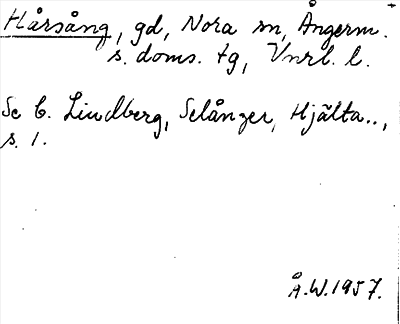 Hårsång, gd, Nora sn, Ångerm.
s. doms. tg, Vnrl. l.
Se C. Lindberg, Selånger, Hjälta..,
s. 1.
Å.W.1957.